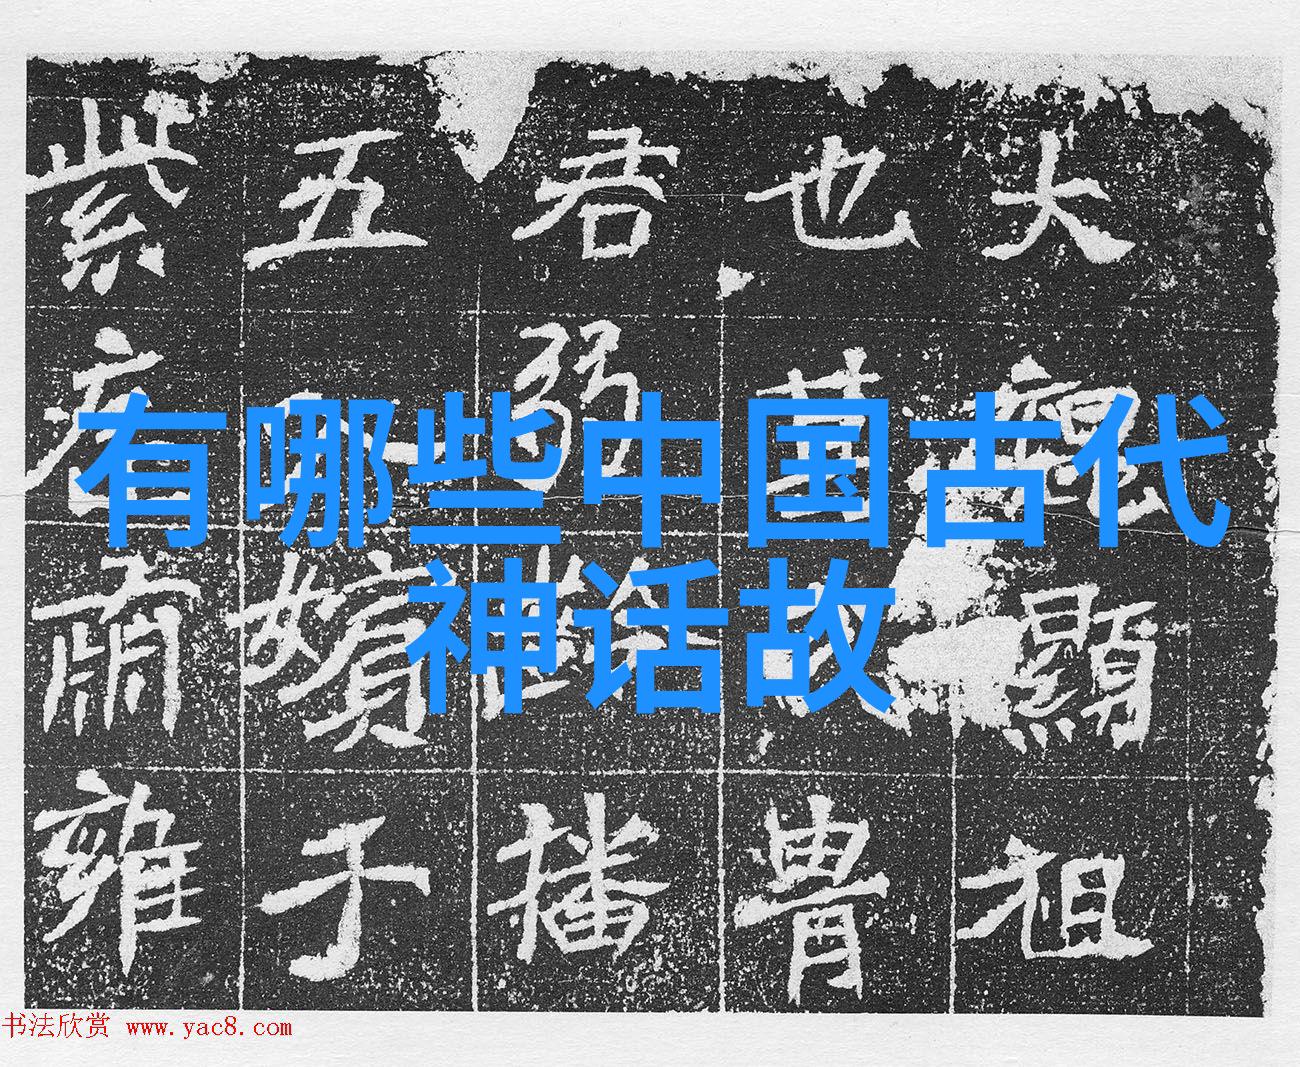 有哪些中国古代
神话故
大 顯祖
也 冑
君弱 播
五 嬪于
紫 肅雍
书法欣赏 www.yac8.com